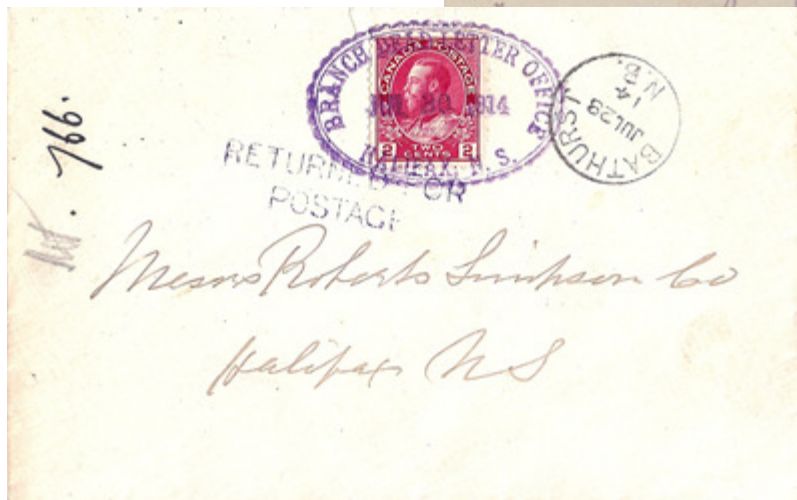 BRANCH DEAD LETTER OFFICE
JUL 30 1914
HALIFAX, N. S.
CANADA POSTAGE
2 TWO CENTS 2
BATHURST
JUL 28
14
N.B.
RETURNED FOR
POSTAGE
766.
Messrs Roberts Simpson Co
Halifax NS